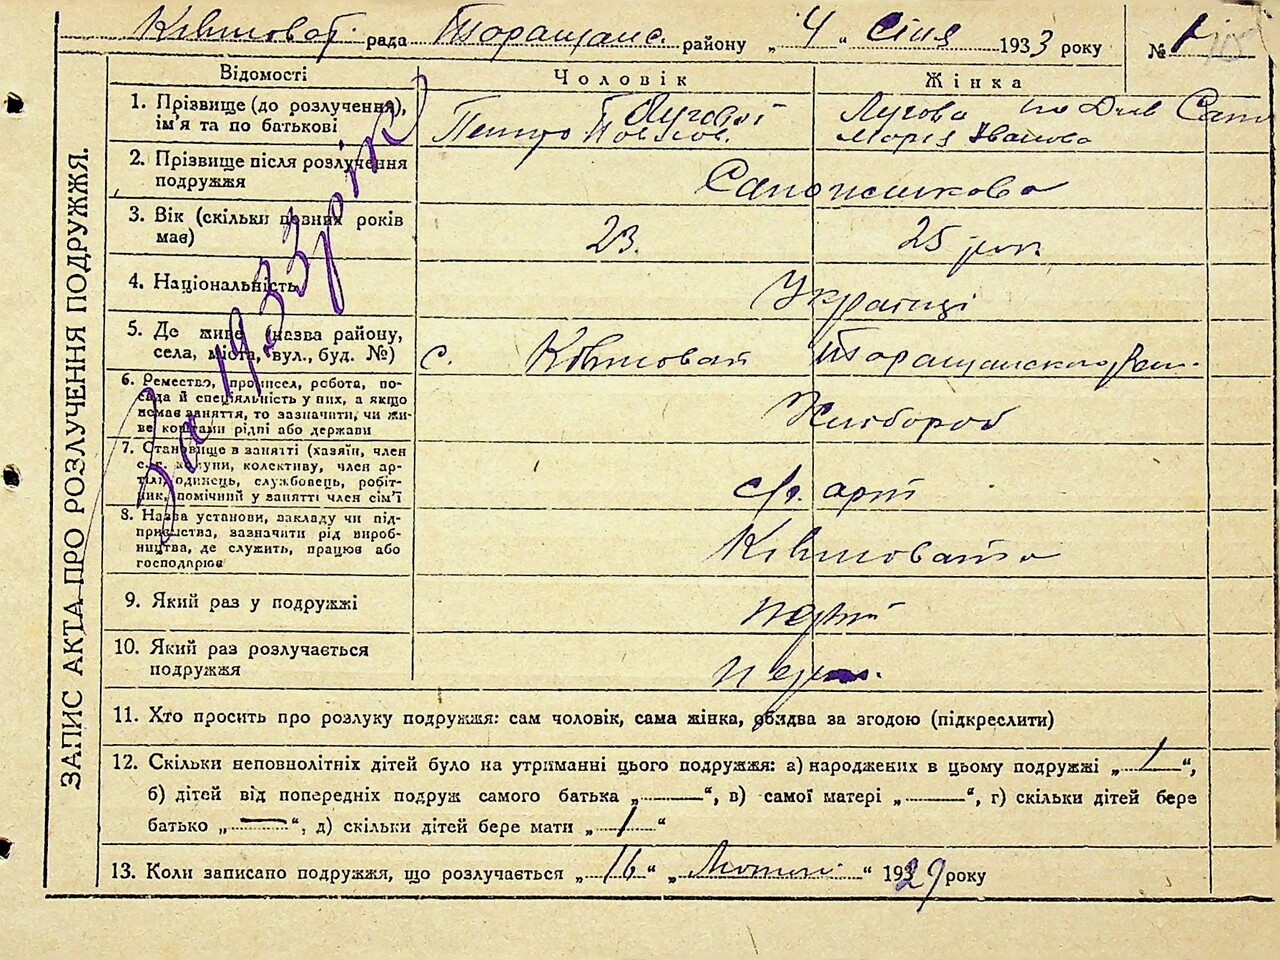 Ківшоват. рада Таращанс. району „ 4 “ Січня 1933 року № 1
ЗАПИС АКТА ПРО РОЗЛУЧЕННЯ ПОДРУЖЖЯ.
За 1933 рік
Відомості Чоловік Жінка
1. Прізвище (до розлучення), ім'я та по батькові
Луговой
Петро Павлов.
Лугова по Дів Сап
Марія Іванова
2. Прізвище після розлучення подружжя
Сапожнікова
3. Вік (скільки повних років має)
23. 25 рок.
4. Національність
Українці
5. Де живе (назва району, села, міста, вул., буд. №)
с. Ківшоват Таращанского Рай.
6. Ремество, промисел, робота, по-
сада й спеціяльність у них, а якщо
немає заняття, то зазначити, чи жи-
ве коштами рідні або держави
Хлібороб
7. Становище в занятті (хазяїн, член
с.-г. комуни, колективу, член ар-
тілі, одинець, службовець, робіт-
ник, помічний у занятті член сім'ї
с/г. арт
8. Назва установи, закладу чи під-
приємства, зазначити рід вироб-
ництва, де служить, працює або
господарює
Ківшовата
9. Який раз у подружжі
10. Який раз розлучається
подружжя
11. Хто просить про розлуку подружжя: сам чоловік, сама жінка, обидва за згодою (підкреслити)
12. Скільки неповнолітніх дітей було на утриманні цього подружжя: а) народжених в цьому подружжі „ 1 “,
б) дітей від попередніх подруж самого батька „—“, в) самої матері „—“, г) скільки дітей бере
батько „—“, д) скільки дітей бере мати „ 1 “
13. Коли записано подружжя, що розлучається „ 16 “ „ Лютий “ 1929 року